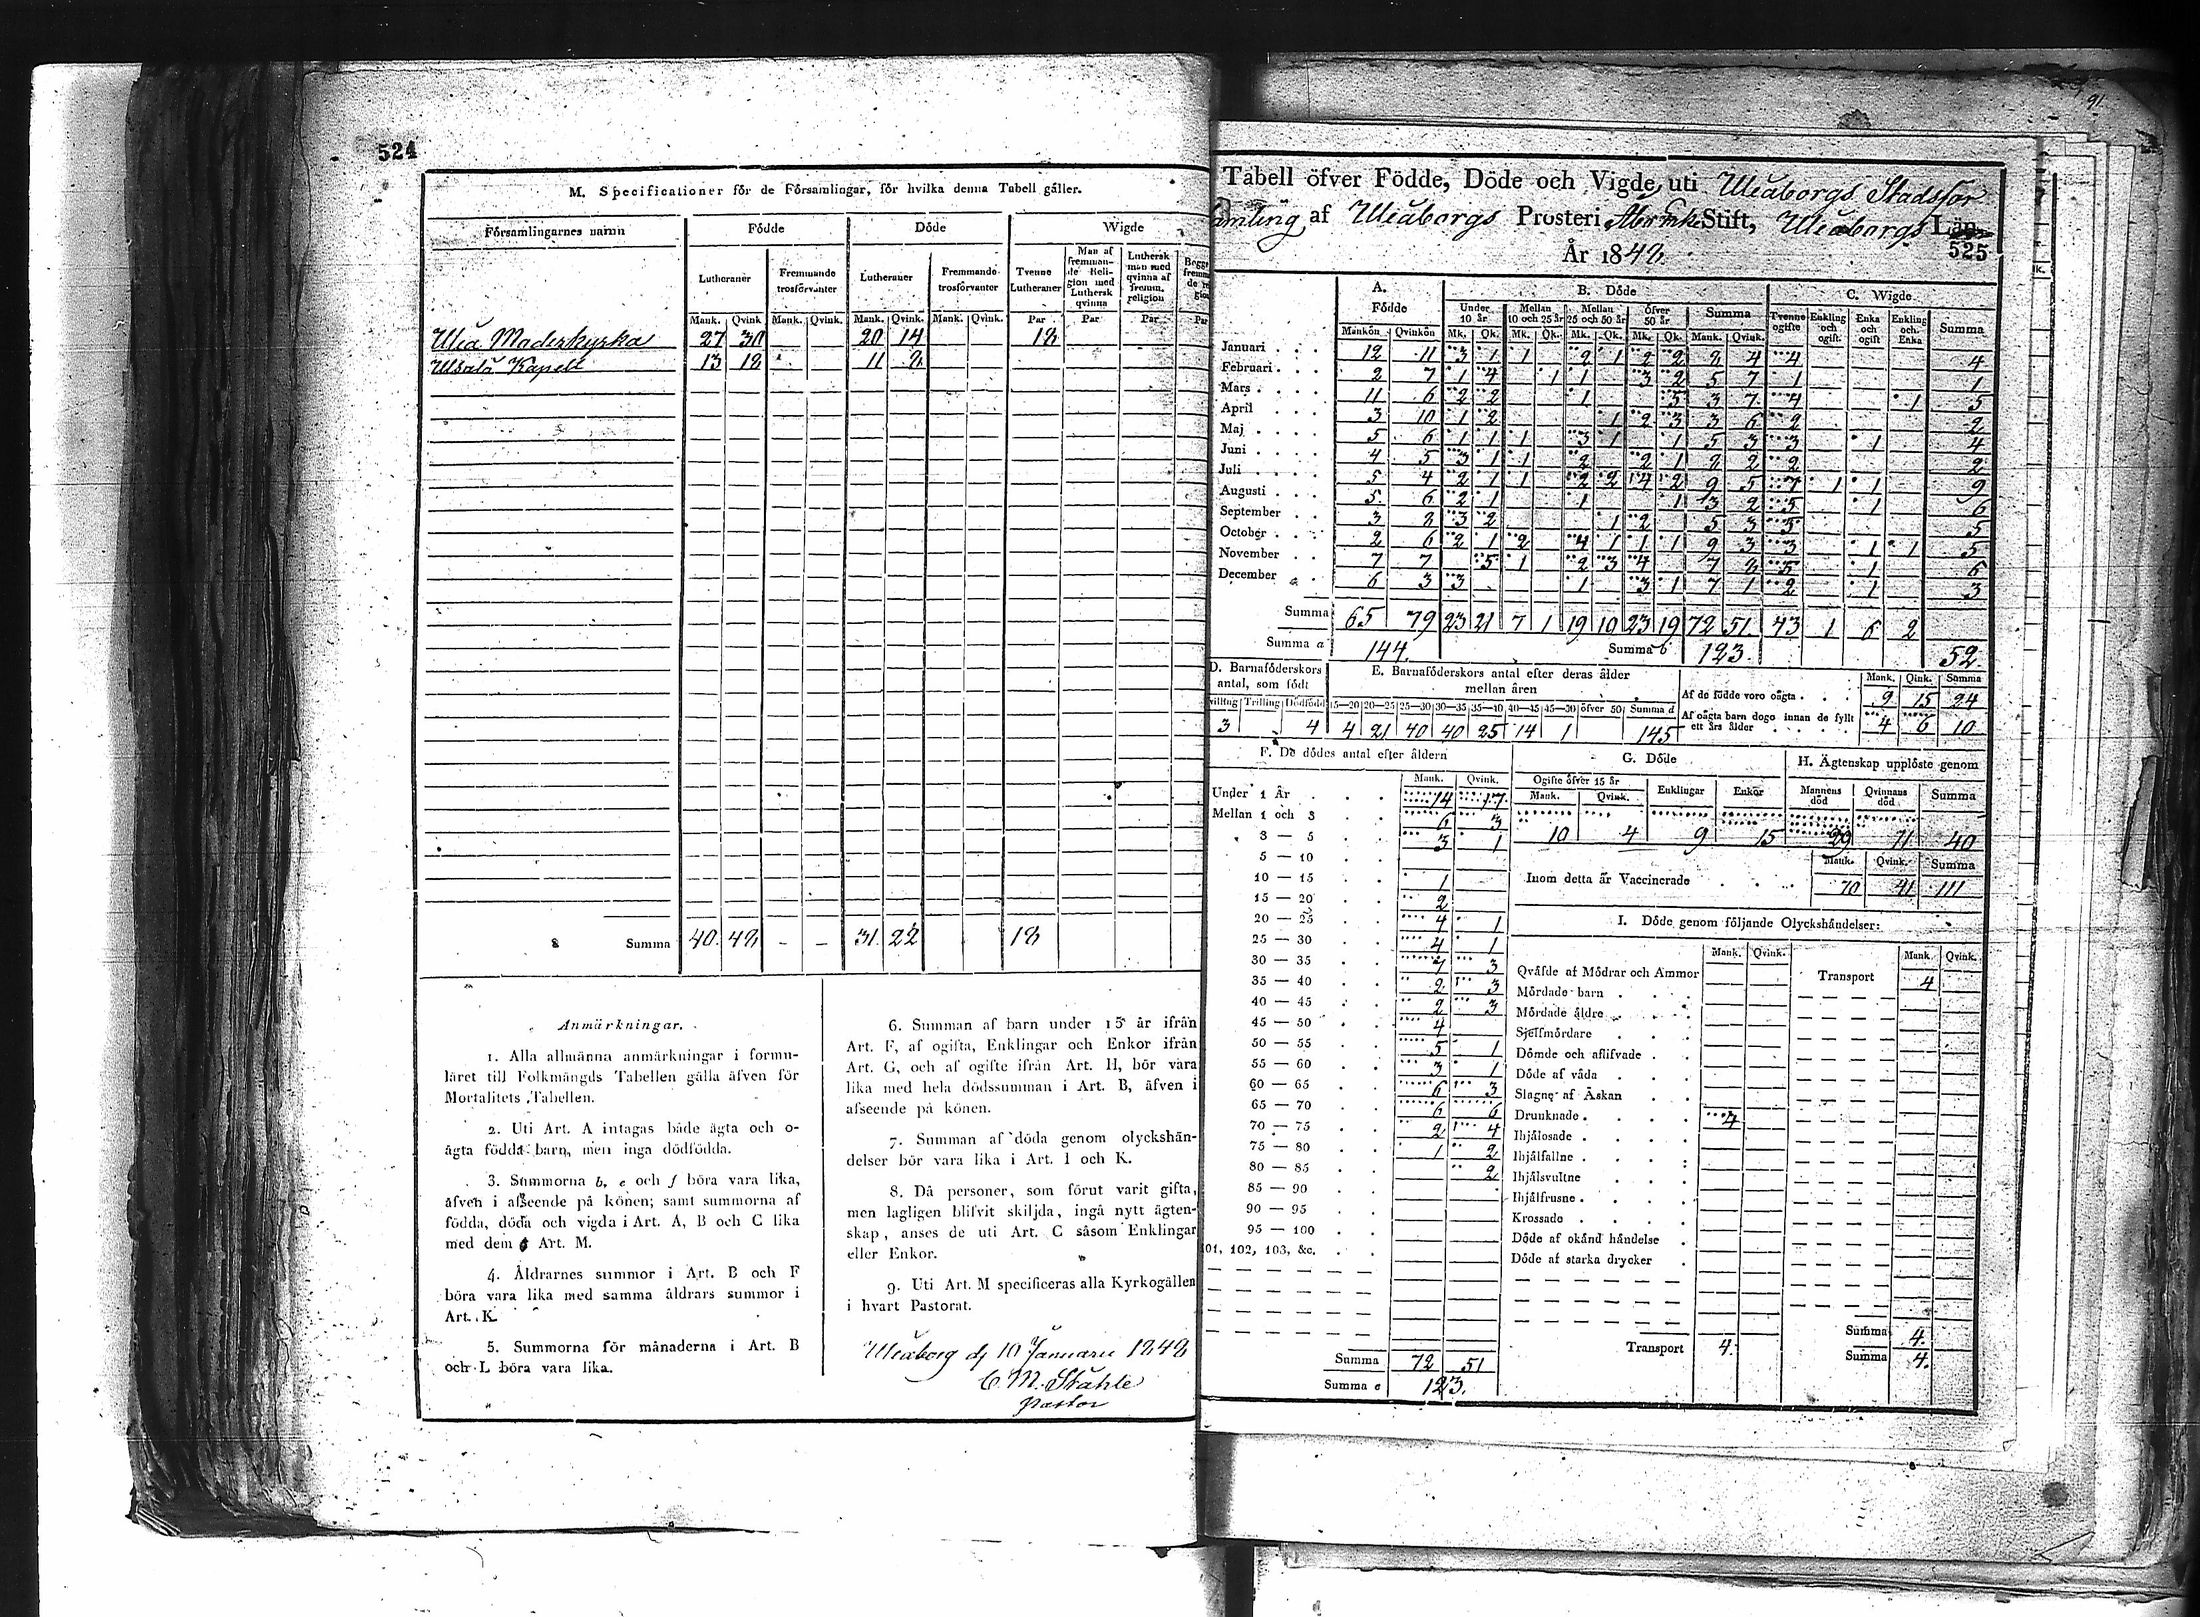 524
M. Specificationer för de Församlingar, för hvilka denna Tabell gäller.
Församlingarnes namn Födde Döde Wigde
Lutheraner Fremmande trosförvanter Lutheraner Fremmande trosförvanter Tvenne Lutheraner Man af fremmande Religion med Luthersk qvinna Luthersk man med qvinna af fremm. religion
Mank. Qvink. Mank. Qvink. Mank. Qvink. Mank. Qvink. Par Par Par Par
Uleå Moderkyrka 27 30 20 14 18
Ulsalö Kapell 13 18 11 8
Summa 40. 48 - - 31. 22 18
Anmärkningar.
1. Alla allmänna anmärkningar i formu-
läret till Folkmängds Tabellen gälla äfven för
Mortalitets Tabellen.
2. Uti Art. A intagas både ägta och o-
ägta födda barn, men inga dödfödda.
3. Summorna b, e och f böra vara lika,
äfven i afseende på könen; samt summorna af
födda, döda och vigda i Art. A, B och C lika
med dem i Art. M.
4. Åldrarnes summor i Art. B och F
böra vara lika med samma åldrars summor i
Art. K.
5. Summorna för månaderna i Art. B
och L böra vara lika.
6. Summan af barn under 15 år ifrån
Art. F, af ogifta, Enklingar och Enkor ifrån
Art. G, och af ogifte ifrån Art. H, bör vara
lika med hela dödssumman i Art. B, äfven i
afseende på könen.
7. Summan af döda genom olyckshän-
delser bör vara lika i Art. I och K.
8. Då personer, som förut varit gifta,
men lagligen blifvit skiljda, ingå nytt ägten-
skap, anses de uti Art. C såsom Enklingar
eller Enkor.
9. Uti Art. M specificeras alla Kyrkogällen
i hvart Pastorat.
Uleåborg d 10 Januarii 1848
C. M. Ståhle
Pastor
Tabell öfver Födde, Döde och Vigde, uti Uleåborgs Stadsför
samling af Uleåborgs Prosteri Stift, Uleåborgs Län.
År 1848.
525
A. Födde B. Döde C. Wigde
Under 10 år Mellan 10 och 25 år Mellan 25 och 50 år Öfver 50 år Summa Tvenne ogifte Enkling och ogift. Enka och ogift Enkling och Enka Summa
Mankön Qvinkön Mk. Qk. Mk. Qk. Mk. Qk. Mk. Qk. Mank. Qvink.
Januari 12 11 3 1 1 2 1 2 2 8 4 4 4
Februari 2 7 1 4 1 1 3 2 5 7 1 1
Mars 11 6 2 2 1 5 3 7 4 1 5
April 3 10 1 2 1 2 3 3 6 2 2
Maj 5 6 1 1 1 3 1 1 5 3 3 1 4
Juni 4 5 3 1 1 2 2 1 8 2 2 2
Juli 5 4 2 1 1 2 2 4 2 9 5 7 1 1 9
Augusti 5 6 2 1 1 1 3 2 5 1 6
September 3 8 3 2 1 2 5 3 5 5
October 2 6 2 1 2 4 1 1 1 9 3 3 1 1 5
November 7 7 5 1 2 3 4 7 8 5 1 6
December 6 3 3 1 3 1 7 1 2 1 3
Summa 65 79 23 21 7 1 19 10 23 19 72 51 43 1 6 2
Summa a 144. Summa b 123. 52
D. Barnaföderskors antal, som födt
E. Barnaföderskors antal efter deras ålder mellan åren
Trilling Dödfödd 15—20 20—25 25—30 30—35 35—40 40—45 45—50 öfver 50 Summa d
3 4 4 21 40 40 25 14 1 145
Mank. Qink. Summa
Af de födde voro oägta 9 15 24
Af oägta barn dogo innan de fyllt ett års ålder 4 6 10
F. De dödes antal efter åldern
Mank. Qvink.
Under 1 År 14 17
Mellan 1 och 3 6 3
3 — 5 3 1
5 — 10
10 — 15 1
15 — 20 2
20 — 25 4 1
25 — 30 4 1
30 — 35 7 3
35 — 40 2 3
40 — 45 2 3
45 — 50 4
50 — 55 5 1
55 — 60 3 1
60 — 65 6 3
65 — 70 6 6
70 — 75 2 4
75 — 80 1 2
80 — 85 2
85 — 90
90 — 95
95 — 100
101, 102, 103, &c.
Summa 72 51
Summa e 123.
G. Döde
Ogifte öfver 15 år Enklingar Enkor
Mank. Qvink.
10 4 9 15
H. Ägtenskap upplöste genom
Mannens död Qvinnans död Summa
29 11 40
Mank. Qvink. Summa
Inom detta år Vaccinerade 70 41 111
I. Döde genom följande Olyckshändelser:
Mank. Qvink. Mank. Qvink.
Qväfde af Mödrar och Ammor Transport 4
Mördade barn
Mördade äldre
Sjelfmördare
Dömde och aflifvade
Döde af våda
Slagne af Åskan
Drunknade 4
Ihjälosade
Ihjälfallne
Ihjälsvultne
Ihjälfrusne
Krossade
Döde af okänd händelse
Döde af starka drycker
Transport 4.
Summa 4.
Summa 4.